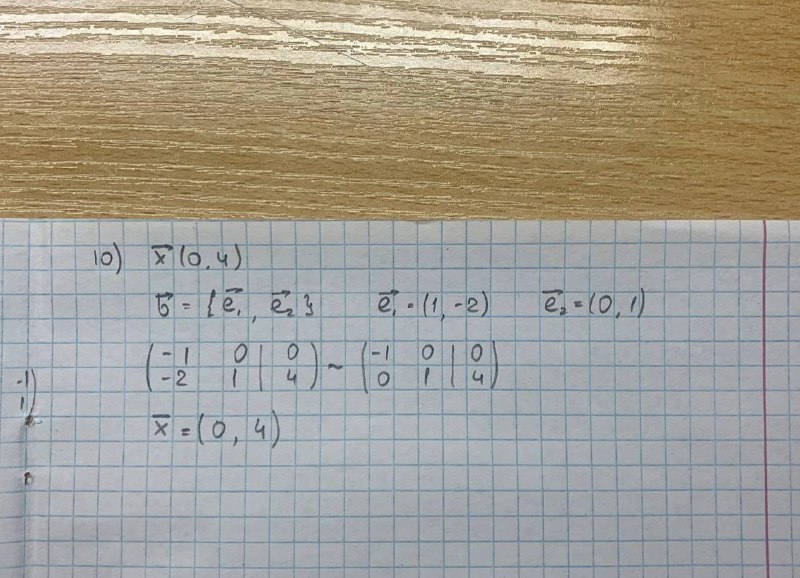 10) x⃗ (0, 4)
b⃗ = {e⃗₁, e⃗₂} e⃗₁ = (1, -2) e⃗₂ = (0, 1)
( -1 0 | 0 ) ~ ( -1 0 | 0 )
( -2 1 | 4 ) ( 0 1 | 4 )
-1)
1)
x̄ = (0, 4)